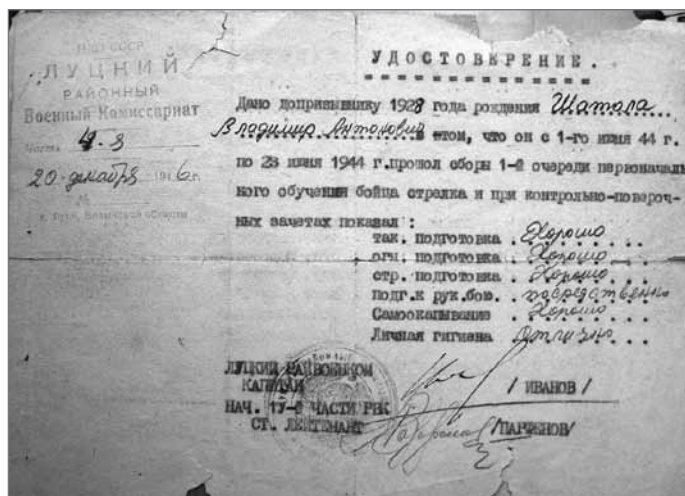 НКО СССР
ЛУЦКИЙ
РАЙОННЫЙ
Военный Комиссариат
Часть 4-я
20 декабря 1946г.
№
г. Луцк, Волынской области
УДОСТОВЕРЕНИЕ.
Дано допризывнику 1928 года рождения Шатала
Владимир Антонович в том, что он с 1-го июня 44 г.
по 23 июня 1944 г.прошол сборы 1-й очереди первоначаль
ного обучения бойца стрелка и при контрольно-повероч-
ных зачетах показал :
так. подготовка . Хорошо
огн. подготовка . Хорошо
стр. подготовка . Хорошо
подг.к рук.бою. . посредственно
Самоокапывание . Хорошо
Личная гигиена Отлично
ЛУЦКИЙ РАЙВОЕНКОМ
КАПИТАН / ИВАНОВ /
НАЧ. 1У-й ЧАСТИ РВК
СТ. ЛЕЙТЕНАНТ /ПАРФЕНОВ/